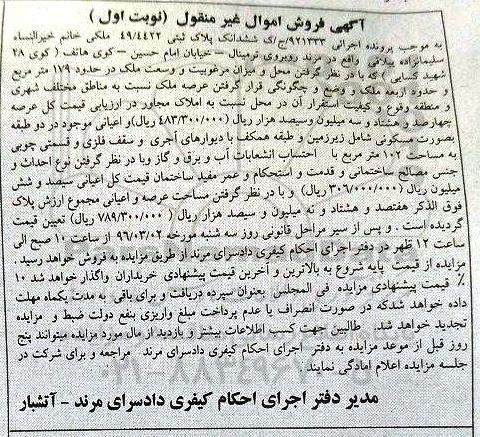 آگهی فروش اموال غیر منقول (نوبت اول)
به موجب پرونده اجرائی ۹۲۱۳۳۳/ج ک ششدانگ پلاک ثبتی ۴۹/۴۴۲۲ ملکی خانم خیرالنساء
سلیمانزاده ییلاقی واقع در مرند روبروی ترمینال - خیابان امام حسین - کوی هاتف ( کوی ۲۸
شهید کسایی ) که با در نظر گرفتن محل و میزان مرغوبیت و وسعت ملک در حدود ۱۷۹ متر مربع
و حدود اربعه ملک و وضع و چگونگی قرار گرفتن عرصه ملک نسبت به مناطق مختلف شهری
و منطقه وقوع و کیفیت استقرار آن در محل نسبت به املاک مجاور در ارزیابی قیمت کل عرصه
چهارصد و هشتاد و سه میلیون وسیصد هزار ریال (۴۸۳/۳۰۰/۰۰۰ ریال)و اعیانی موجود در دو طبقه
بصورت مسکونی شامل زیرزمین و طبقه همکف با دیوارهای آجری و سقف فلزی و قسمتی چوبی
به مساحت ۱۰۲ متر مربع با احتساب انشعابات آب و برق و گاز وبا در نظر گرفتن نوع احداث و
جنس مصالح ساختمانی و قدمت و استحکام و عمر مفید ساختمان قیمت کل اعیانی سیصد و شش
میلیون ریال (۳۰۶/۰۰۰/۰۰۰ ریال) و با در نظر گرفتن مساحت عرصه و اعیانی مجموع ارزش پلاک
فوق الذکر هفتصد و هشتاد و نه میلیون و سیصد هزار ریال ( ۷۸۹/۳۰۰/۰۰۰ ریال) تعیین قیمت
گردیده است . و پس از سیر مراحل قانونی روز سه شنبه مورخه ۹۶/۰۳/۰۲ از ساعت ۱۰ صبح الی
ساعت ۱۲ ظهر در دفتر اجرای احکام کیفری دادسرای مرند از طریق مزایده به فروش خواهد رسید .
مزایده از قیمت پایه شروع به بالاترین و آخرین قیمت پیشنهادی خریداران واگذار خواهد شد ۱۰
٪ قیمت پیشنهادی مزایده فی المجلس بعنوان سپرده دریافت و برای باقی به مدت یکماه مهلت
داده خواهد شدکه در صورت انصراف یا عدم پرداخت مبلغ واریزی بنفع دولت ضبط و مزایده
تجدید خواهد شد . طالبین جهت کسب اطلاعات بیشتر و بازدید از مال مورد مزایده میتوانند پنج
روز قبل از موعد مزایده به دفتر اجرای احکام کیفری دادسرای مرند مراجعه و برای شرکت در
جلسه مزایده اعلام آمادگی نمایند
۰۲۱-۸۸۳۴۹۶۷۰
مدیر دفتر اجرای احکام کیفری دادسرای مرند - آتشبار